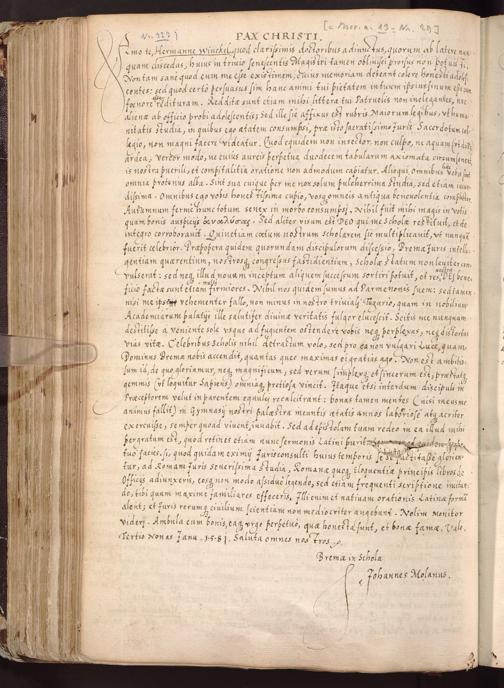 PAX CHRISTI.
Amo te, Hermanne Winckel, quod clarissimis doctoribus adiunctus, quorum ab latere nun
quam discedas, huius in triuio senescentis Magistri tamen obliuisci prorsus non potuisti.
Non tam sane quod eum me esse existimem, cuius memoriam debeant colere honesti adoles
centes: sed quod certo persuasus sim hanc animi tui pietatem
foenore redituram. Reddita sunt etiam mihi litterae tui Patruelis non inelegantes, nec
alienae ab officio probi adolescentis: sed ille sic affixus est rubris Maiorum legibus, ut huma
nitatis studia, in quibus ego aetatem consumpsi, prae isto sacratissimo Iuris Sacerdotum col
legio, non magni facere videatur. Quod equidem non insector: non culpo, ne aquam
ardea: vereor modo, ne cuius aureis perpetuo duodecim tabularum axiomata circumsonent,
is nostra puerili, et compitalitia oratione non admodum capiatur. Alioqui omnibus
omnia protenus alba. Sint sua cuique per me non solum pulcherrima studia, sed etiam iucun
dissima. Omnibus ego vobis honestissima cupio, vosque omneis antiqua beneuolentia complector.
Autumnum ferme hunc totum senex in morbo consumpsi. Nihil fuit mihi magis in votis
quam bonis auspicijs Sed aliter visum est DEO qui me Scholae restituit, et de
integro corroborauit. Quin etiam coetum nostrum scholarem sic multiplicauit, ut nunquam
fuerit celebrior. Praepopera quidem quorundam discipulorum discessio, Bremae Iuris intelli
gentiam quaerentium, nostrosque congressus fastidientium, Scholae statum non leuiter con
vulserat: sed neque illud nouum inceptum aliquem successum sortiri potuit, et res nostrae DEI bene
ficio factae sunt etiam firmiores. Nihil nos quidem sumus ad Parmenonis suem: sed tamen
nisi me ipsum vehementer fallo, non minus in nostro triuiali Tugurio, quam in nobilium
Academiarum palatijs ille salutifer diuinae veritatis fulgor elucescit. Scitis me nunquam
destitisse a veniente sole usque ad fugientem ostendere vobis neque perplexas, neque distortas
vias vitae. Celebribus Scholis nihil detractum volo, sed pro ea non vulgari Luce, quam
Dominus Bremae nobis accendit, quantas queo maximas ei gratias ago. Non est ambitio
sum id, de quo gloriamur, neque magnificum, sed verum simplexque et sincerum est, praestatque
gemmis (ut loquitur Sapiens) omniaque pretiosa vincit. Itaque etsi interdum discipuli in
Praeceptorem velut in parentem equulei recalcitrant: bonas tamen mentes (nisi meus me
animus fallit) in Gymnasij nostri palaestra ineuntis aetatis annos laboriose atque acriter
exercuisse, semper quoad vivent, iuuabit. Sed ad epistolam tuam redeo in ea illud mihi
pergratum est, quod retines etiam nunc sermonis Latini puritatem
tuo facies, si, quod quidam eximij Iurisconsulti huius temporis se factitasse glorian
tur, ad Romani Iuris seuerissima studia, Romanae quoque eloquentiae principis libros de
Officijs adiunxeris, eosque non modo assidue legendo, sed etiam frequenti scriptione imitan
do, tibi quam maxime familiares effeceris. Illi enim et natiuam orationis Latinae formam
alent, et Iuris rerumque ciuilium scientiam non mediocriter augebunt. Nolim monitor
videri. Ambula cum bonis, eaque urge perpetuo, quae honesta sunt, et bonae famae. Vale.
Tertio Nonas Janu. 1581. Saluta omnes nostros.
Bremae in Schola
Johannes Molanus.